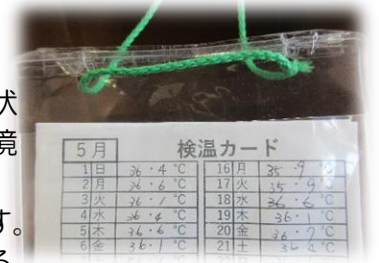 状
境
す。
る
5月 検温カード
1 日 36・4 ℃ 16 月 35・9 ℃
2 月 36・6 ℃ 17 火 35・9 ℃
3 火 36・1 ℃ 18 水 36・6 ℃
4 水 36・4 ℃ 19 木 36・1 ℃
5 木 36・6 ℃ 20 金 36・7 ℃
6 金 36・1 ℃ 21 土 36・2 ℃